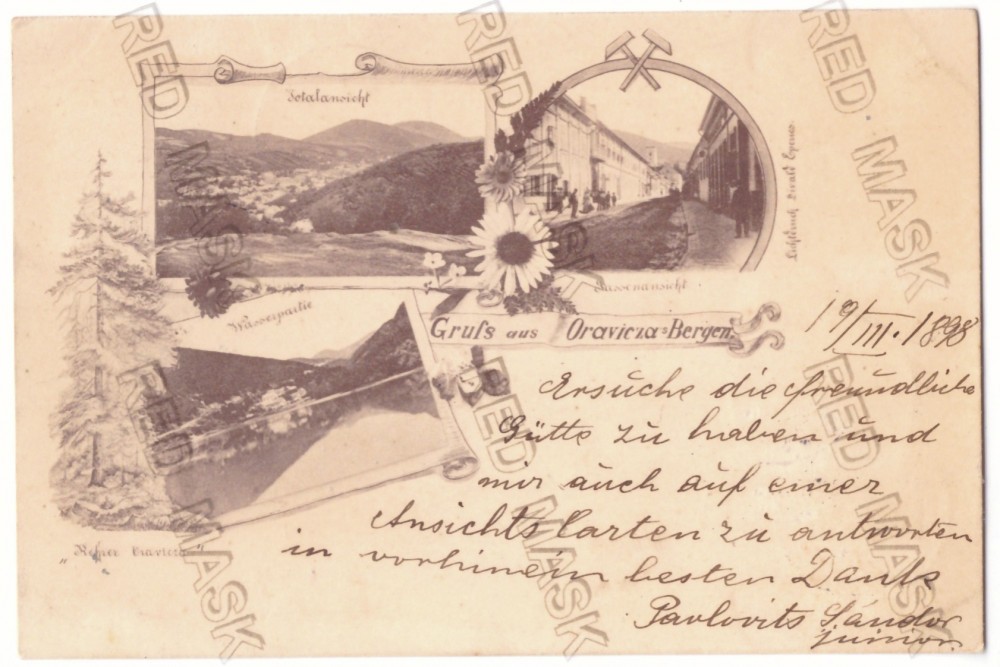 Totalansicht
Gassenansicht
Lichtdruck Divald Eperies.
Wasserpartie
Gruſs aus Oravicza-Bergen.
19/III. 1898
Ersuche die freundliche
Gütte zu haben und
mir auch auf einer
Ansichts Carten zu antworten
in vorhinein besten Dank
Pavlovits Sándor
junior.
"Oravicza"
RED MASK
RED MASK
RED MASK
RED MASK
RED MASK
RED MASK